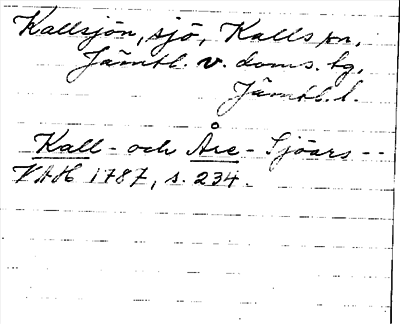 Kallsjön, sjö, Kalls sn,
Jämtl. v. doms. tg,
Jämtl. l.
Kall- och Åre- Sjöars --
VAH 1787, s. 234.